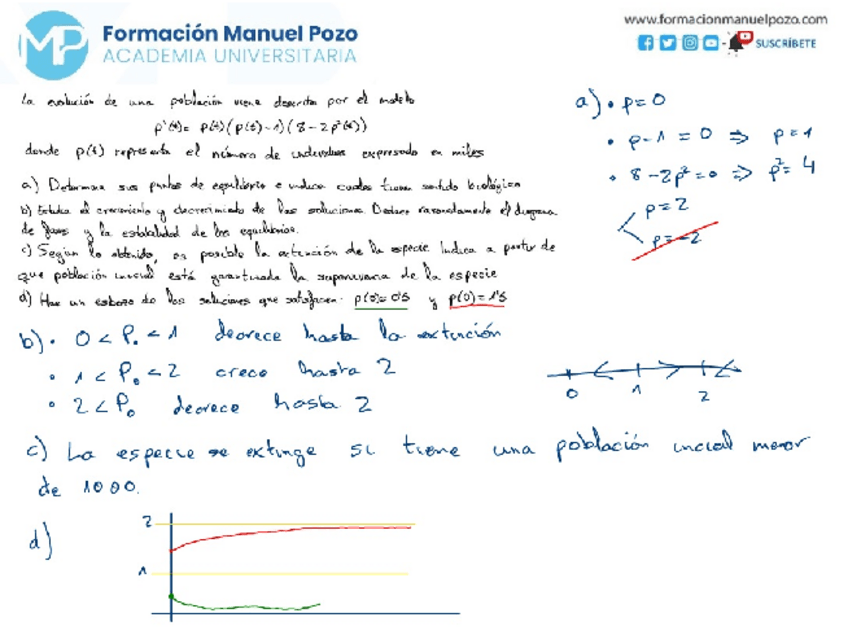 Formación Manuel Pozo
ACADEMIA UNIVERSITARIA
www.formacionmanuelpozo.com
SUSCRÍBETE
La evolución de una población viene descrita por el modelo
p'(t) = p(t)(p(t)-1)(8-2p²(t))
donde p(t) representa el número de individuos expresado en miles
a) Determina sus puntos de equilibrio e indica cuales tienen sentido biológico
b) Estudia el crecimiento y decrecimiento de las soluciones. Deduce razonadamente el diagrama
de fases y la estabilidad de los equilibrios.
c) Según lo obtenido, es posible la extinción de la especie. Indica a partir de
que población inicial está garantizada la supervivencia de la especie
d) Haz un esbozo de las soluciones que satisfacen. p(0)=0'5 y p(0)=1'5
a) • p=0
• p-1=0 ⇒ p=1
• 8-2p²=0 ⇒ p²=4
p=2
p=-2
b) • 0<P₀<1 decrece hasta la extinción
• 1<P₀<2 crece hasta 2
• 2<P₀ decrece hasta 2
0 1 2
c) La especie se extinge si tiene una población inicial menor
de 1000.
d)
2
1